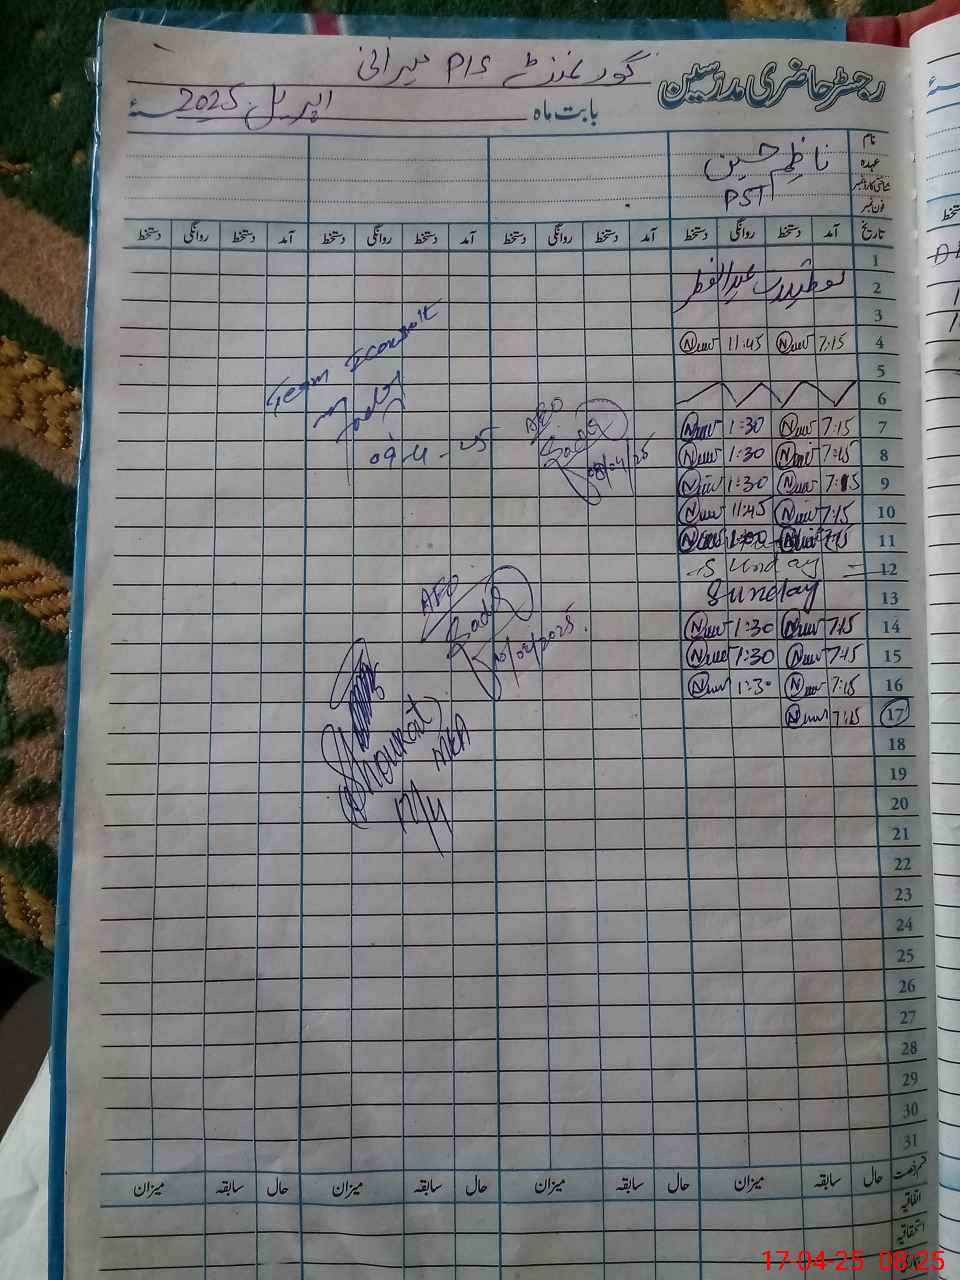 گورنمنٹ P/S میرانی
رجسٹر حاضری مدرسین
بابت ماہ اپریل 2025 سنہ
نام ناظم حسین
عہدہ PST
شناختی کارڈ نمبر
فون نمبر
تاریخ آمد دستخط روانگی دستخط آمد دستخط روانگی دستخط آمد دستخط روانگی دستخط آمد دستخط روانگی دستخط
1
2 تعطیلات عیدالفطر
3
4 7:15 11:45
5
6
7 7:15 1:30
8 7:15 1:30
9 7:15 1:30
10 7:15 11:45
11 7:15
12 Sunday
13 Sunday
14 7:15 1:30
15 7:15 1:30
16 7:15 1:30
17 7:15
18
19
20
21
22
23
24
25
26
27
28
29
30
31
Team
09-4-25
AEO
08/04/25
AEO
10/04/2025
Shoukat
MEA
17/4
قسم رخصت حال سابقہ میزان حال سابقہ میزان حال سابقہ میزان حال سابقہ میزان
اتفاقیہ
استحقاقیہ
17-04-25 08:25